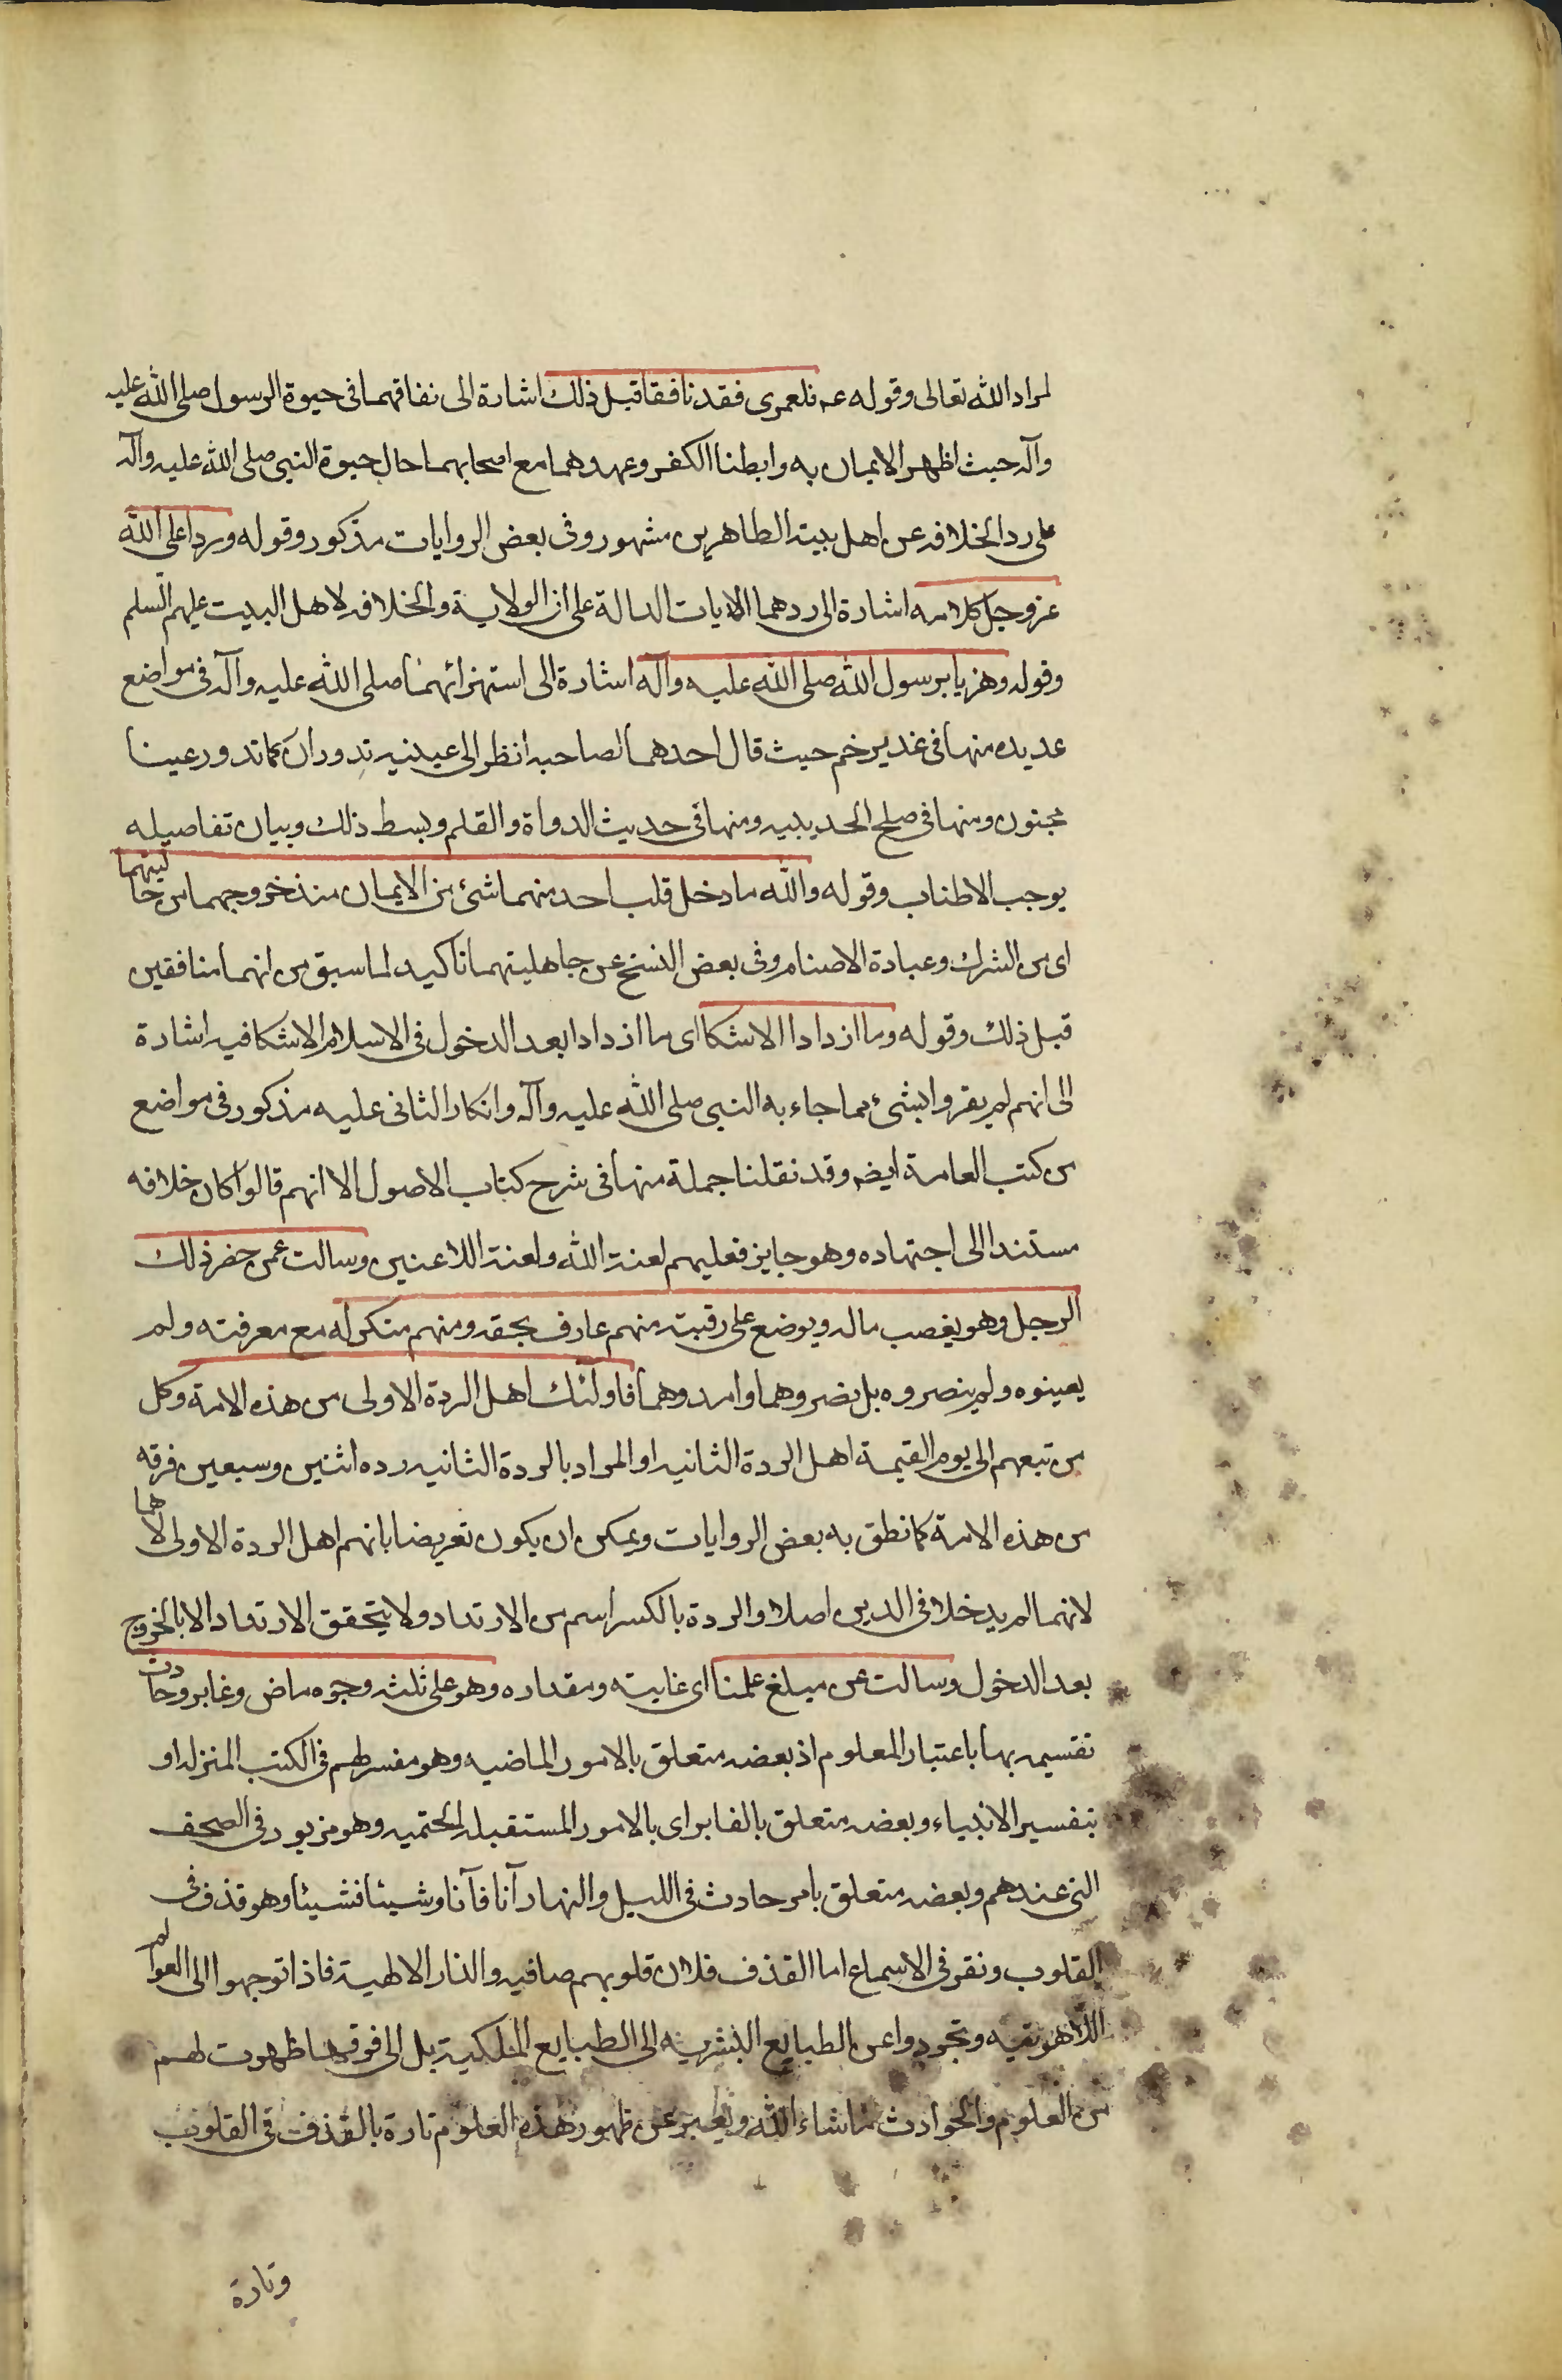 لمراد الله تعالى وقوله عـ فلعمرى فقد نافقا قبل ذلك اشارة الى نفاقهما فى حيوة الرسول صلى الله عليه
وآله حيث اظهر الايمان به وابطنا الكفر وعهدهما مع اصحابهما حال حيوة النبى صلى الله عليه وآله
على رد الخلافه عن اهل بيته الطاهرين مشهور وفى بعض الروايات مذكور وقوله وردا على الله
عز وجل كلامه اشارة الى ردهما الايات الدالة على ان الولاية والخلافه لاهل البيت عليهم السلم
وقوله وهزيا برسول الله صلى الله عليه وآله اشارة الى استهزائهما صلى الله عليه وآله فى مواضع
عديده منها فى غدير خم حيث قال احدهما لصاحبه انظر الى عينيه تدوران كما تدور عينا
مجنون ومنها فى صلح الحديبيه ومنها فى حديث الدواة والقلم وبسط ذلك وبيان تفاصيله
يوجب الاطناب وقوله والله ما دخل قلب احد منهما شئ من الايمان منذ خروجهما من حالتيهما
اى من الشرك وعبادة الاصنام وفى بعض النسخ عن جاهليتهما تاكيد لما سبق من انهما منافقين
قبل ذلك وقوله وما ازدادا الا شكا اى ما ازدادا بعد الدخول فى الاسلام الا شكا فيه اشارة
الى انهم لم يقروا بشئ مما جاء به النبى صلى الله عليه وآله وانكار الثانى عليه مذكور فى مواضع
من كتب العامة ايضـ وقد نقلنا جملة منها فى شرح كتاب الاصول الا انهم قالوا كان خلافه
مستندا الى اجتهاده وهو جايز فعليهم لعنة الله ولعنة اللاعنين وسالت عمن حضر ذلك
الرجل وهو يغصب ماله ويوضع على رقبته منهم عارف بحقه ومنهم منكر له مع معرفته ولم
يعينوه ولم ينصروه بل نصروهما وامدوهما فاولئك اهل الردة الاولى من هذه الامة وكل
من تبعهم الى يوم القيمة اهل الردة الثانيه او المراد بالردة الثانيه رده اثنين وسبعين فرقه
من هذه الامة كما نطق به بعض الروايات ويمكن ان يكون تعريضا بانهم اهل الردة الاولى لا هما
لانهما لم يدخلا فى الدين اصلا والردة بالكسر اسم من الارتداد ولا يتحقق الارتداد الا بالخروج
بعد الدخول وسالت عن مبلغ علمنا اى غايته ومقداره وهو على ثلثه وجوه ماض وغابر وحادث
تقسيمه بها باعتبار المعلوم اذ بعضه متعلق بالامور الماضيه وهو مفسر لهم فى الكتب المنزله او
بتفسير الانبياء وبعضه متعلق بالغابر اى بالامور المستقبله الحتميه وهو مزبور فى الصحف
التى عندهم وبعضه متعلق بامر حادث فى الليل والنهار آنا فآنا وشيئا فشيئا وهو قذف فى
القلوب ونقر فى الاسماع اما القذف فلان قلوبهم صافيه والنار الالهية فاذا توجهوا الى العوالم
اللاهوتيه وتجردوا عن الطبايع البشريه الى الطبايع الملكية بل الى فوقها ظهرت لهم
من العلوم والحوادث ما شاء الله ويعبر عن ظهور هذه العلوم تارة بالقذف فى القلوب
وتارة